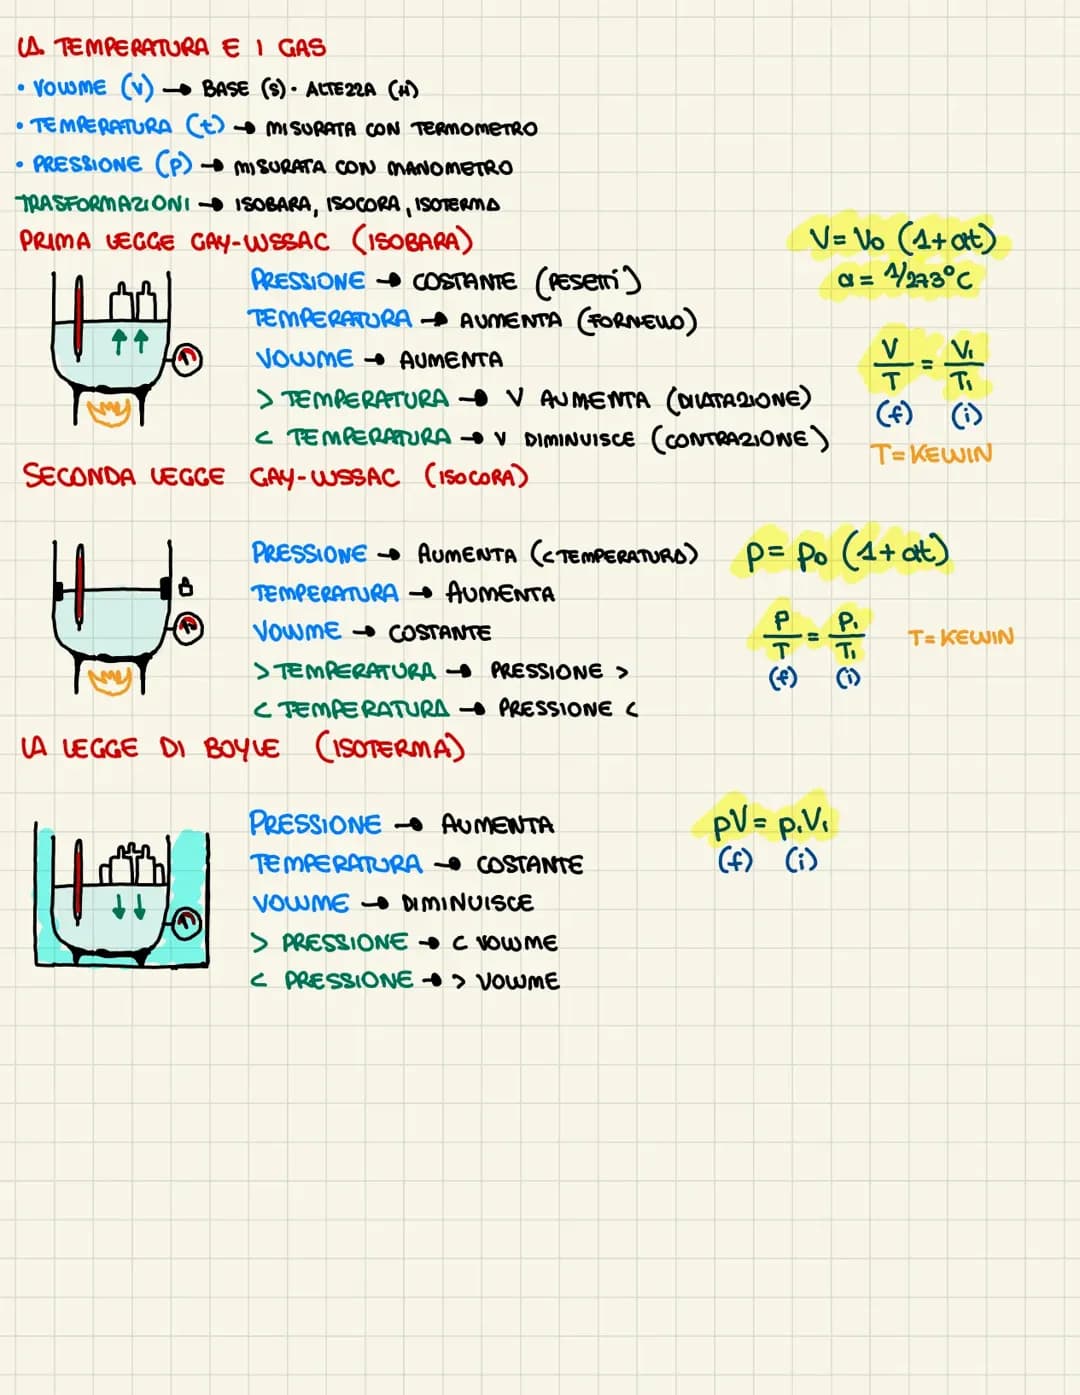 LA TEMPERATURA E I GAS
• VOLUME (V) → BASE (S) · ALTEZZA (H)
• TEMPERATURA (t) → MISURATA CON TERMOMETRO
• PRESSIONE (P) → MISURATA CON MANOMETRO
TRASFORMAZIONI → ISOBARA, ISOCORA, ISOTERMA
PRIMA LEGGE GAY-LUSSAC (ISOBARA)
V = V₀ (1+αt)
α = 1/273°C
PRESSIONE → COSTANTE (PESETTI)
TEMPERATURA → AUMENTA (FORNELLO)
VOLUME → AUMENTA
> TEMPERATURA → V AUMENTA (DILATAZIONE)
< TEMPERATURA → V DIMINUISCE (CONTRAZIONE)
V/T = V₁/T₁
(f) (i)
T = KELVIN
SECONDA LEGGE GAY-LUSSAC (ISOCORA)
PRESSIONE → AUMENTA (< TEMPERATURA)
TEMPERATURA → AUMENTA
VOLUME → COSTANTE
> TEMPERATURA → PRESSIONE >
< TEMPERATURA → PRESSIONE <
p = p₀ (1+αt)
P/T = P₁/T₁
(f) (i)
T = KELVIN
LA LEGGE DI BOYLE (ISOTERMA)
PRESSIONE → AUMENTA
TEMPERATURA → COSTANTE
VOLUME → DIMINUISCE
> PRESSIONE → < VOLUME
< PRESSIONE → > VOLUME
pV = p₁V₁
(f) (i)